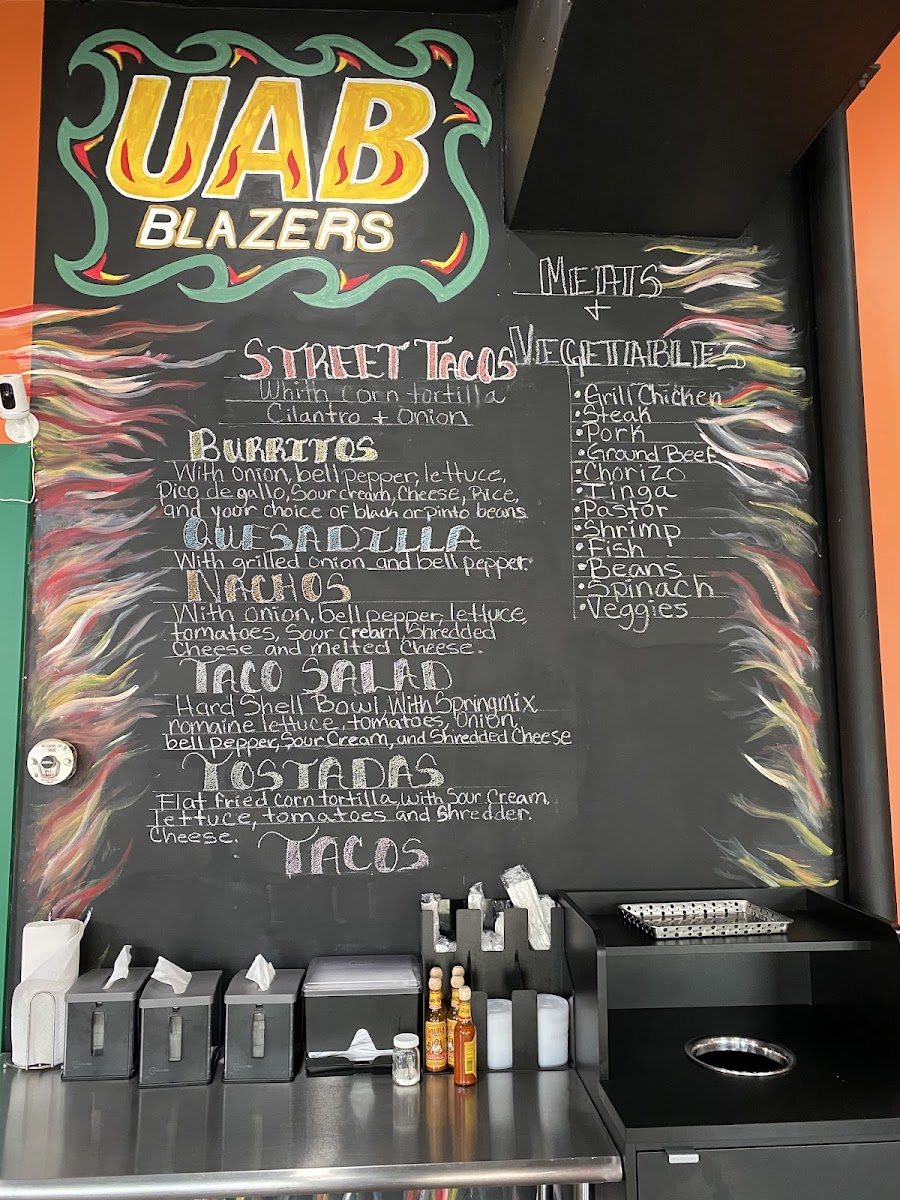 UAB
BLAZERS
STREET TACOS
Whith corn tortilla
Cilantro + Onion
BURRITOS
With onion, bell pepper, lettuce,
Pico de gallo, Sour cream, Cheese, Rice,
and your choice of black or pinto beans
QUESADILLA
With grilled onion and bell pepper.
NACHOS
With onion, bell pepper, lettuce,
tomatoes, Sour cream, Shredded
Cheese and melted Cheese.
TACO SALAD
Hard Shell Bowl, With Springmix
romaine lettuce, tomatoes, Onion,
bell pepper, Sour Cream, and Shredded Cheese
TOSTADAS
Flat fried corn tortilla, with Sour Cream,
lettuce, tomatoes and Shredder
Cheese.
TACOS
MEATS
+
VEGETABLES
• Grill Chicken
• Steak
• Pork
• Ground Beef
• Chorizo
• Tinga
• Pastor
• Shrimp
• Fish
• Beans
• Spinach
• Veggies
CHOLULA